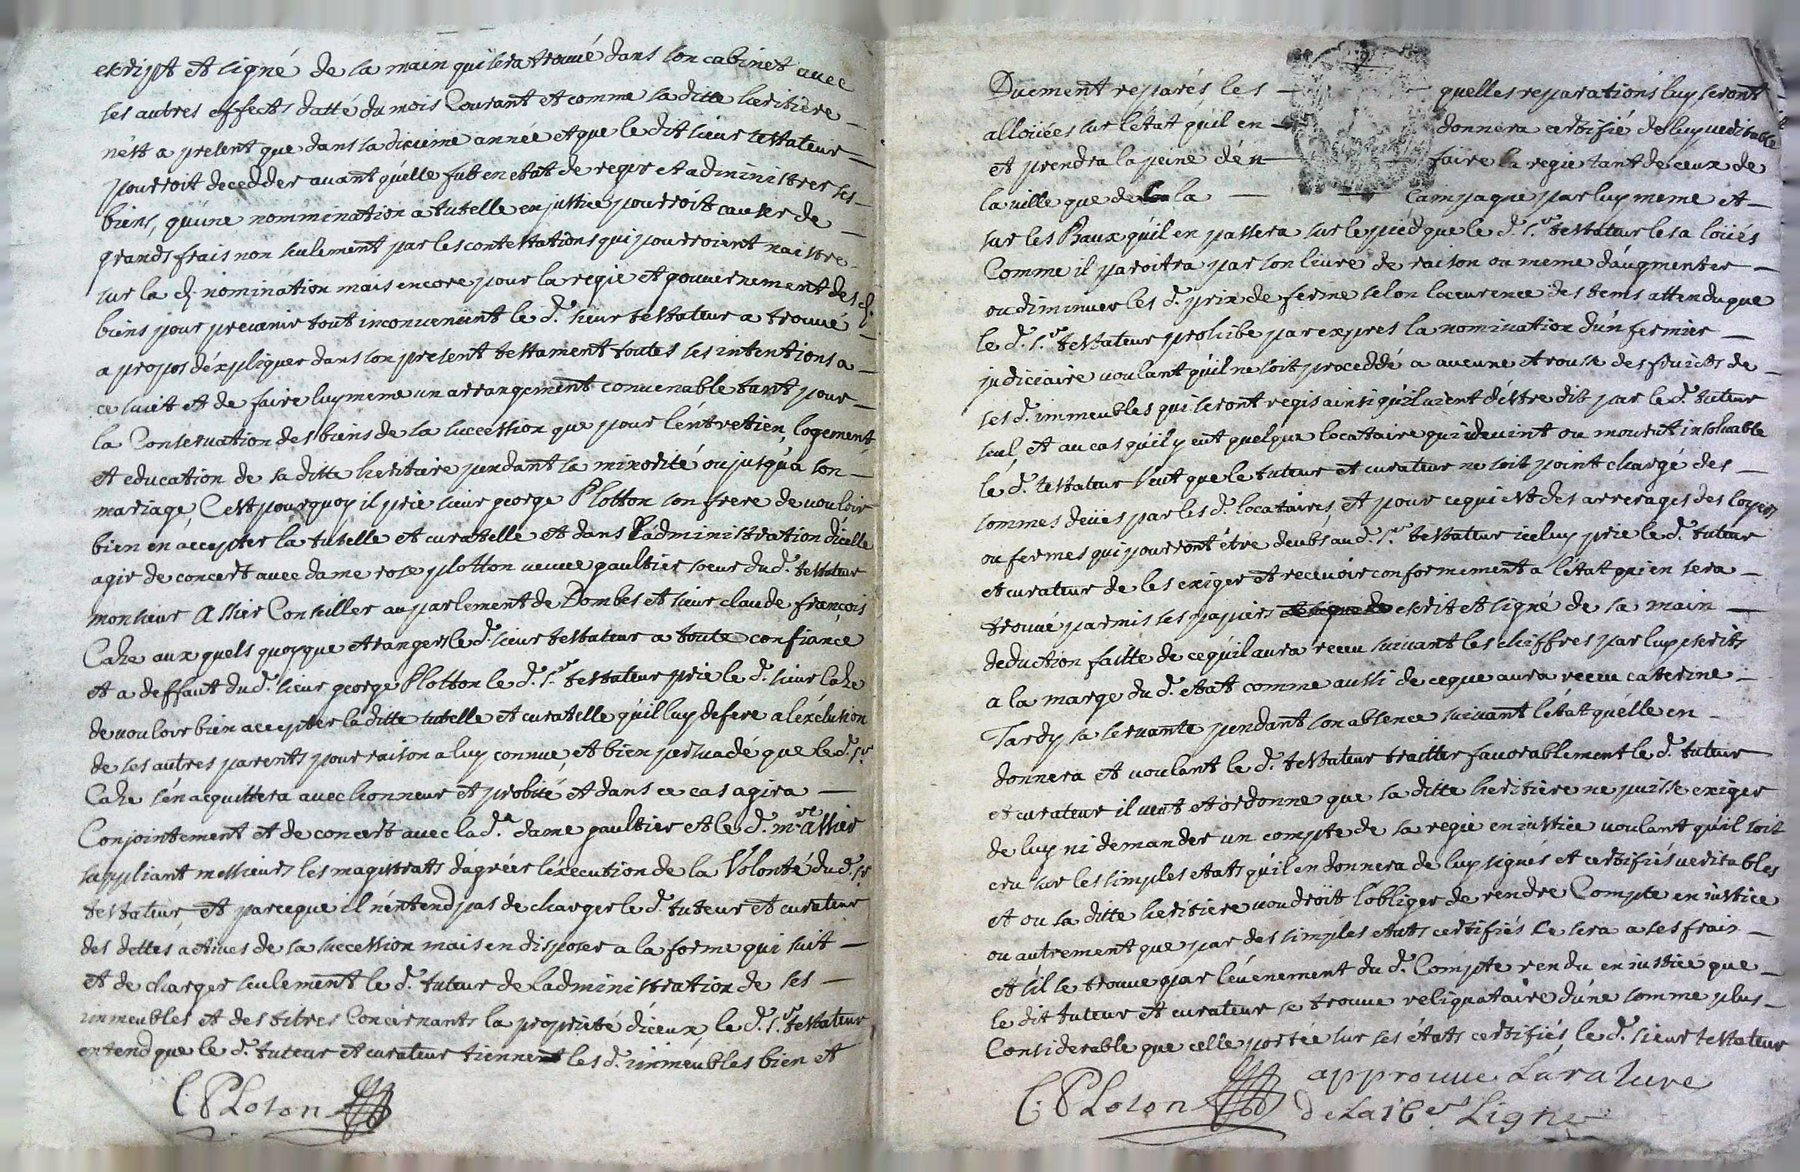 escript et signé de sa main qui sera trouvé dans son cabinet avec
ses autres effects datté du mois Courant et comme sa ditte heritiere
n'est a present que dans sa dixieme année et que le dit sieur testateur
pourroit decedder avant quélle fut en etat de regir et administrer ses
biens, qu'une nommination a tutelle en justice pourroit causer de
grands frais non seulement par les contestations qui pourroient naistre
sur la d. nomination mais encore pour la regie et gouvernement des d.
biens pour prevenir tout inconvenient le d. sieur testateur a trouvé
a propos d'éxpliquer dans son present testament toutes ses intentions a
ce sujet et de faire luy meme un arrangement convenable tant pour
la Conservation des biens de sa succession que pour l'éntretien, logement
et education de sa ditte heritiere pendant sa minorité ou jusqu'a son
mariage, C'est pourquoy il prie sieur george Plotton son frere de vouloir
bien en accepter la tutelle et curatelle et dans L'administration d'icelle
agir de concert avec dame rose plotton veuve gaultier soeur du d. testateur
monsieur assier Conseiller au parlement de Dombes et sieur claude françois
Caze aux quels quoyque etrangers le d. sieur testateur a toute confiance
et a deffaut du d. sieur george Plotton le d. sr. testateur prie le d. sieur Caze
de vouloir bien accepter la ditte tutelle et curatelle qu'il luy defere a l'exclusion
de ses autres parents pour raison a luy connue, et bien persuadé que le d. sr.
Caze s'én acquittera avec honneur et probité et dans ce cas agira
Conjointement et de concert avec la d.e dame gaultier et le d. mr. assier
suppliant messieurs les magistrats d'agréer l'éxecution de la Volonté du d. sr.
testateur, et parceque il n'éntend pas de charger le d. tuteur et curateur
des dettes actives de sa succession mais en disposer a la forme qui suit
et de charger seulement le d. tuteur de L'administration de ses
immeubles et des titres Concernants la proprieté d'iceux, le d. sr. testateur
entend que le d. tuteur et curateur tiennent les d. immeubles bien et
C. PLoton
Duement reparés, les quelles reparations luy seront
alloüées sur l'état qu'il en donnera certifié de luy veritable
et prendra la peine d'én faire la regie tant de ceux de
la ville que de la Campagne par luy meme et
sur les Baux qu'il en passera sur le pied que le d. sr. testateur les a loüés
Comme il paroitra par son livre de raison ou meme d'augmenter
ou diminuer les d. prix de ferme selon l'occurence des tems attendu que
le d. sr. testateur prohibe par expres la nomination d'un fermier
judiciaire voulant qu'il ne soit proceddé a aucune etrousse des fruicts de
ses d. immeubles qui seront regis ainsi qu'il vient d'éstre dit par le d. tuteur
seul, et au cas qu'il y eut quelque locataire qui devint ou mourut insolvable
le d. testateur veut que le tuteur et curateur ne soit point chargé des
sommes deües par les d. locataires, et pour ce qui est des arrerages des loyers
ou fermes qui pourront étre deubs au d. sr. testateur iceluy prie le d. tuteur
et curateur de les exiger et recevoir conformement a l'état qui en sera
trouvé parmis ses papiers escrit et signé de sa main
deduction faitte de cequ'il aura receu suivant les chiffres par luy escrits
a la marge du d. etat comme aussi de ceque aura receu caterine
Tardy sa servante pendant son absence suivant l'état quélle en
donnera et voulant le d. testateur traitter favorablement le d. tuteur
et curateur il veut et ordonne que sa ditte heritiere ne puisse exiger
de luy ni demander un compte de sa regie en justice voulant qu'il soit
cru sur les simples etats qu'il en donnera de luy signés et certifiés veritables
et ou sa ditte heritiere voudroit l'obliger de rendre Compte en justice
ou autrement que par des simples etats certifiés Ce sera a ses frais
et s'il se trouve par l'évenement du d. Compte rendu en justice que
le dit tuteur et curateur se trouve reliquataire d'une somme plus
Considerable que celle portée sur ses états certifiés, le d. sieur testateur
C. PLoton
approuve La rature
de La 16e Ligne